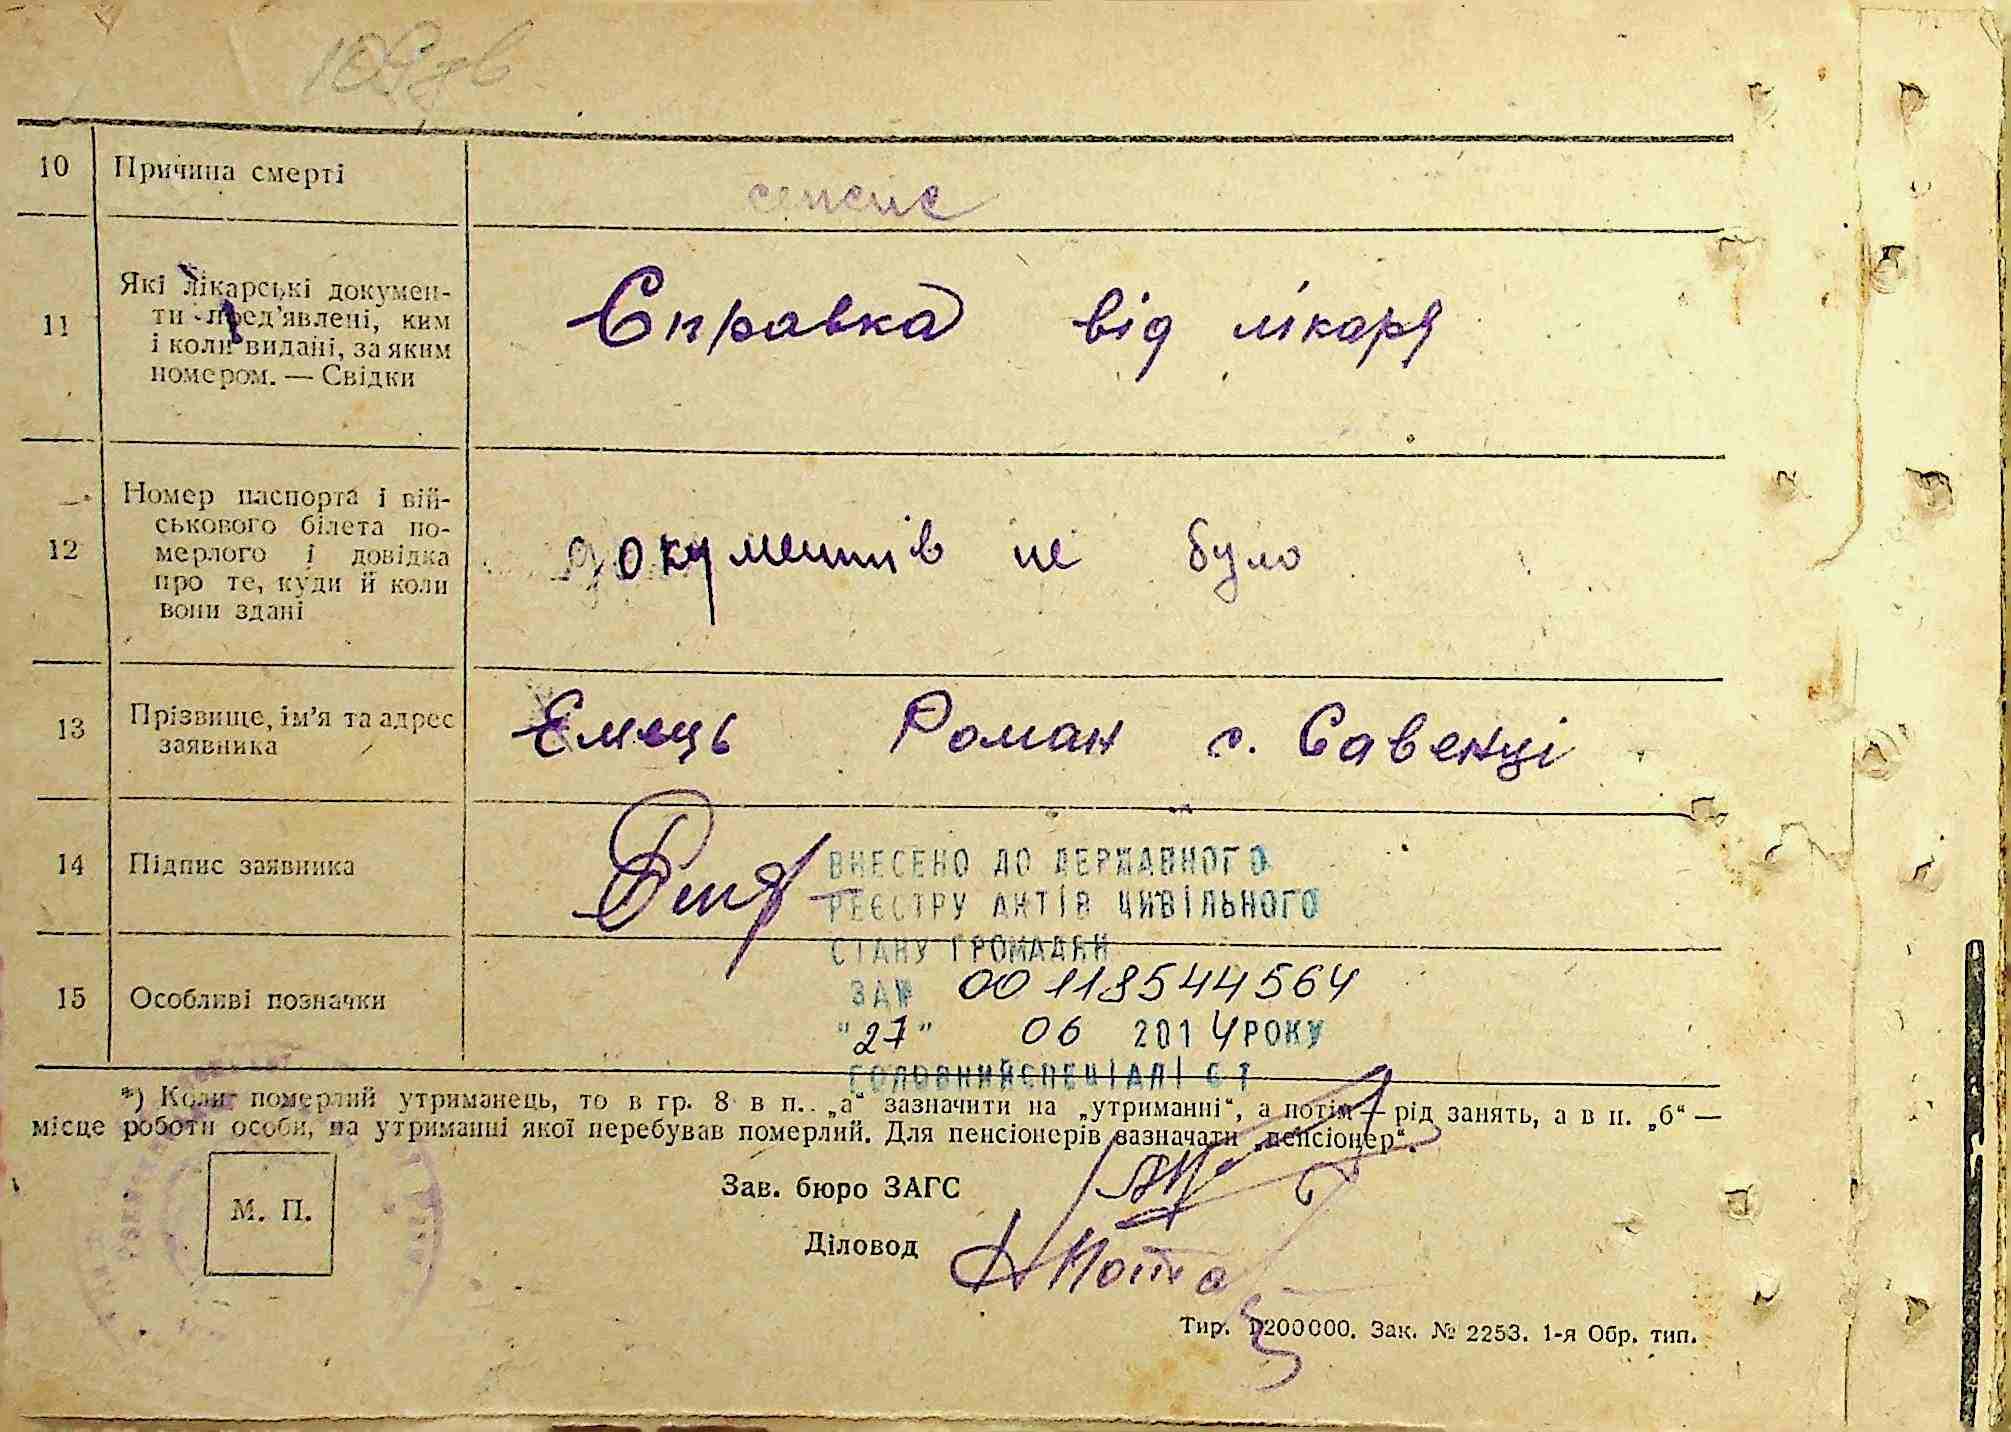 10 Причина смерті сепсис
11 Які лікарські докумен-
ти пред'явлені, ким
і коли видані, за яким
номером. — Свідки
Справка від лікаря
12 Номер паспорта і вій-
ськового білета по-
мерлого і довідка
про те, куди й коли
вони здані
документів не було
13 Прізвище, ім'я та адрес
заявника
Емець Роман с. Савенці
14 Підпис заявника
ВНЕСЕНО ДО ДЕРЖАВНОГО
РЕЄСТРУ АКТІВ ЦИВІЛЬНОГО
СТАНУ ГРОМАДЯН
15 Особливі позначки
ЗА№ 00118544564
"27" 06 2014 РОКУ
ГОЛОВНИЙ СПЕЦІАЛІСТ
*) Коли померлий утриманець, то в гр. 8 в п. „а“ зазначити на „утриманні“, а потім — рід занять, а в п. „б“ —
місце роботи особи, на утриманні якої перебував померлий. Для пенсіонерів зазначати „пенсіонер“.
М. П.
Зав. бюро ЗАГС
Діловод
Тир. 1200000. Зак. № 2253. 1-я Обр. тип.